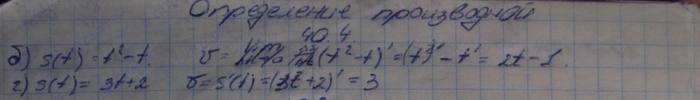 Определение производной
40.4
б) s(t) = t² - t. v = (t² - t)' = (t²)' - t' = 2t - 1.
г) s(t) = 3t + 2 v = s'(t) = (3t + 2)' = 3